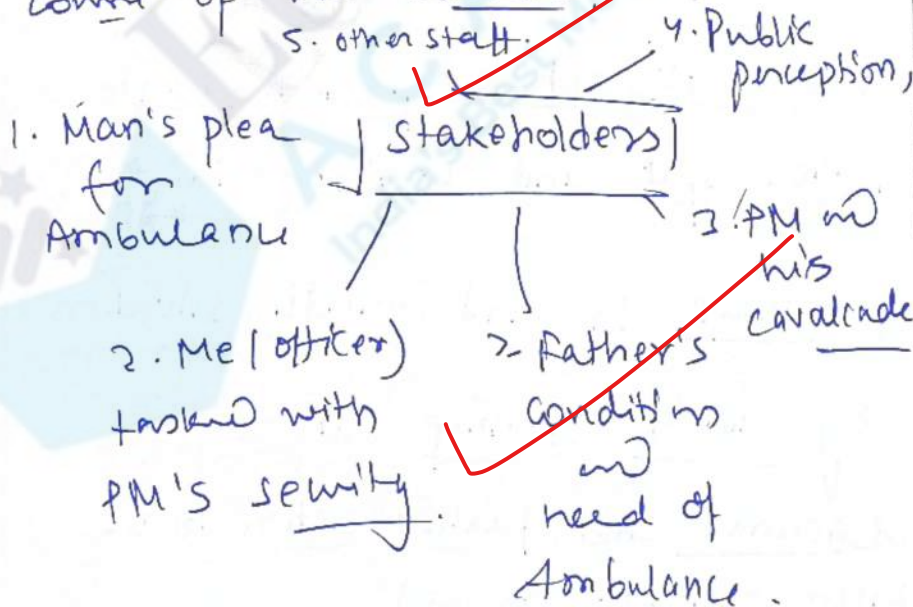 of
5. other staff.
4. Public
perception,
1. Man's plea
for
Ambulance
Stakeholders
3. PM and
his
cavalcade
2. Me (officer)
tasked with
PM's security.
2. Father's
condition
and
need of
Ambulance.
India's Best